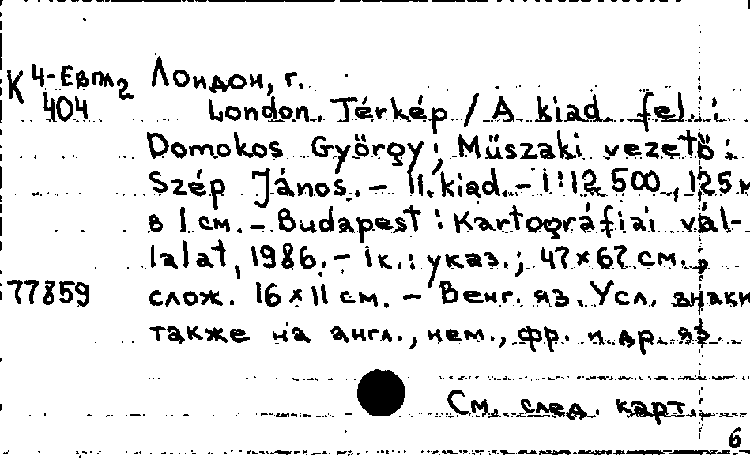 К 4-Евпл2 Лондон, г.
404 London. Térkép / A kiad. fel. :
Domokos György; Műszaki vezető :
Szép János. – 11. kiad. – 1:12 500, 125 м
в 1 см. – Budapest : Kartográfiai vál-
lalat, 1986. – 1 к.: указ.; 47×67 см.,
77859 слож. 16×11 см. – Венг. яз. Усл. знаки
также на англ., нем., фр. и др. яз.
См. след. карт.
6